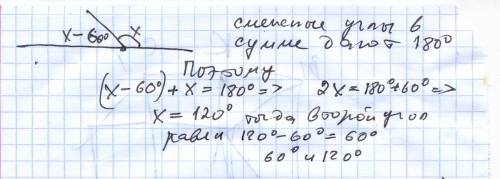 x-60° x
смежные углы в
сумме дают 180°
Поэтому
(x-60°)+x=180°=> 2x=180°+60°=>
x=120° тогда второй угол
равен 120°-60°=60°
60° и 120°